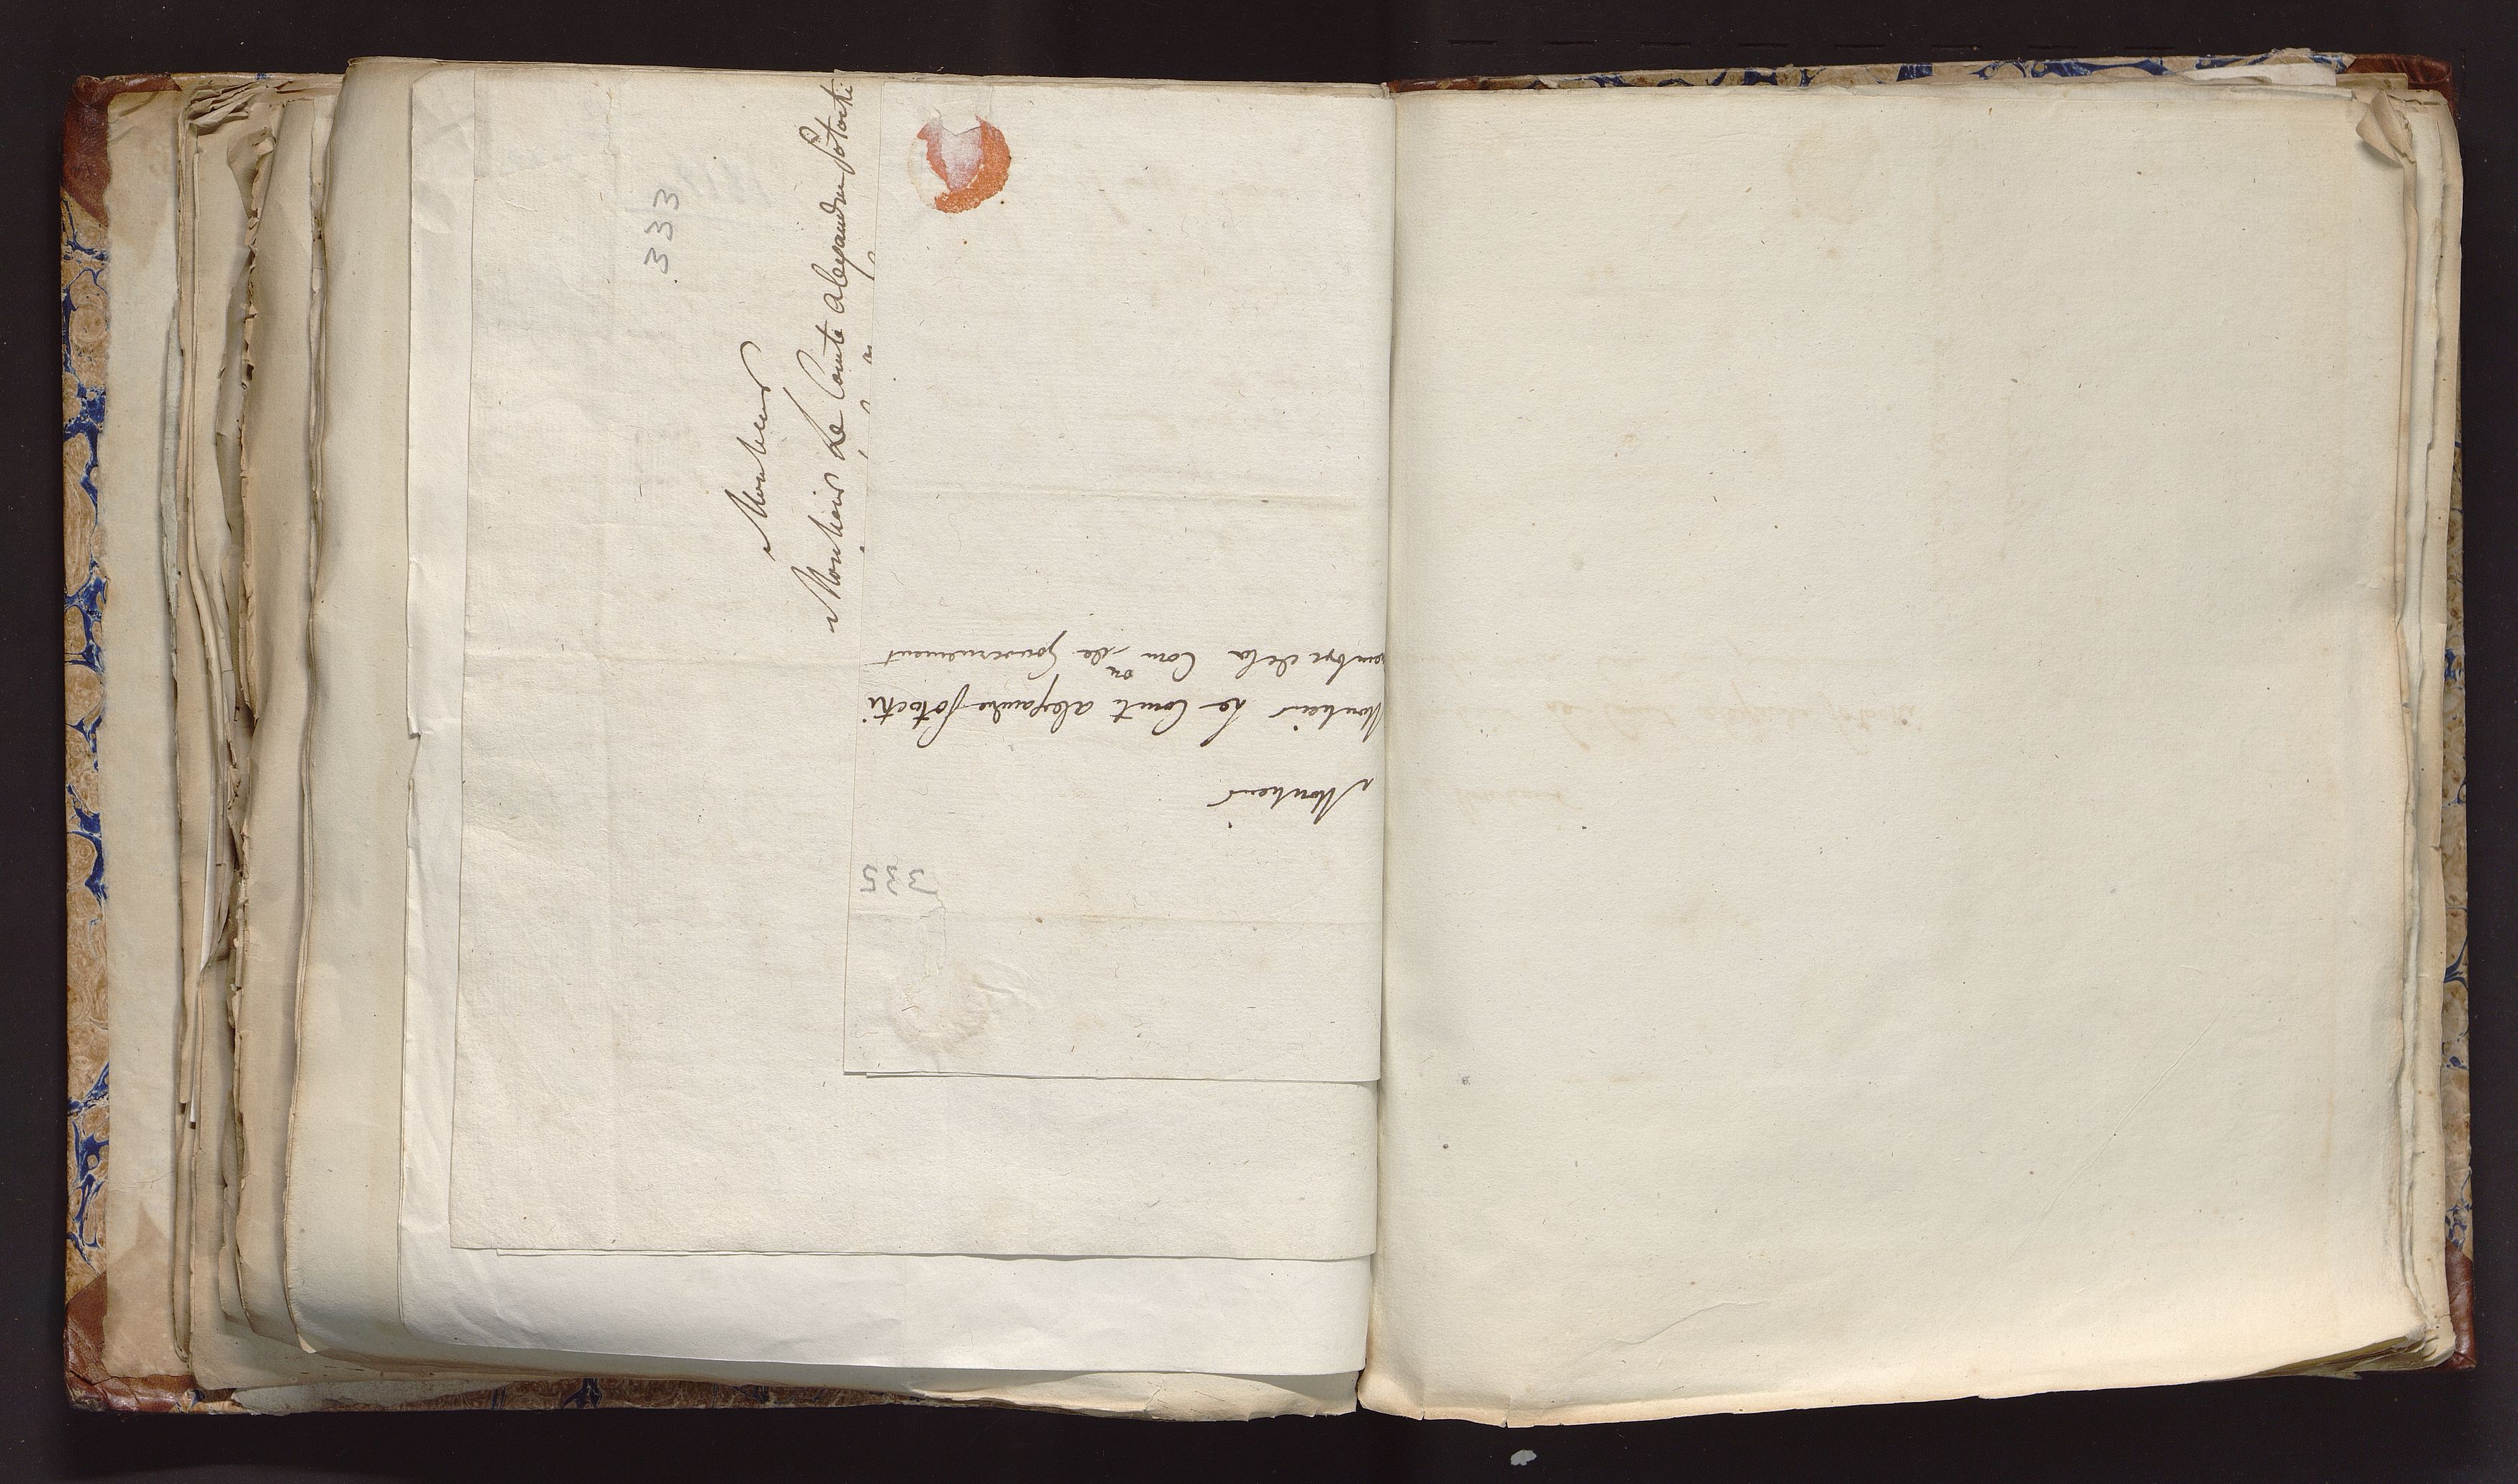 333
Monsieur
Monsieur Le Comte Alexandre Potocki
Monsieur
Monsieur Le Comte alexandre Potocki
embre de la Com.on de Gouvernement
335